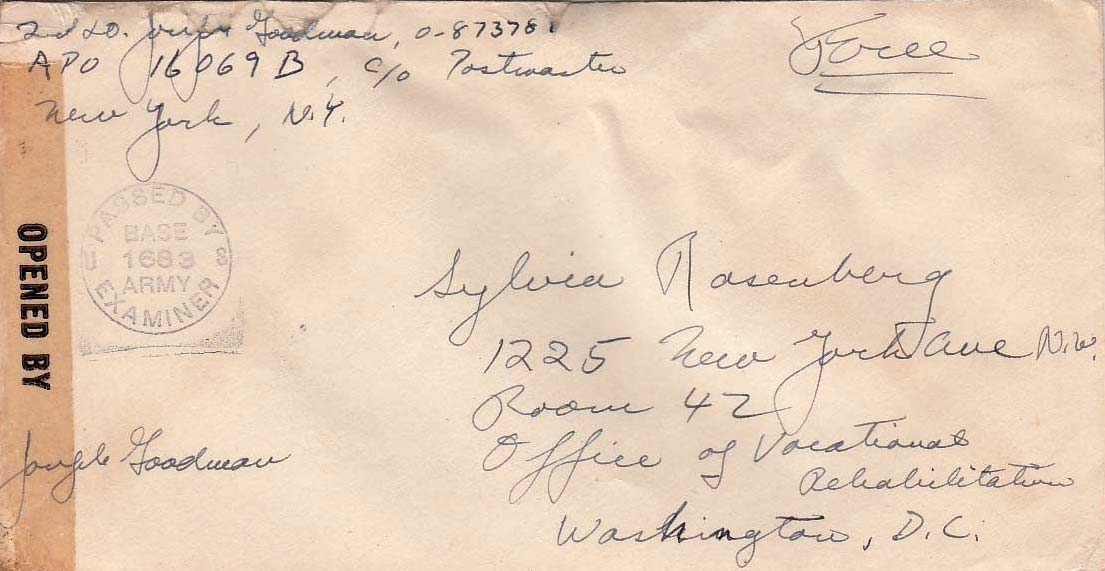 2nd Lt. Joseph Goodman, O-873781
APO 16069 B, c/o Postmaster
New York, N.Y.
Free
PASSED BY
BASE
1683
ARMY
EXAMINER
U S
OPENED BY
Sylvia Rosenberg
1225 New York Ave N.W.
Room 42
Office of Vocational
Rehabilitation
Washington, D.C.
Joseph Goodman